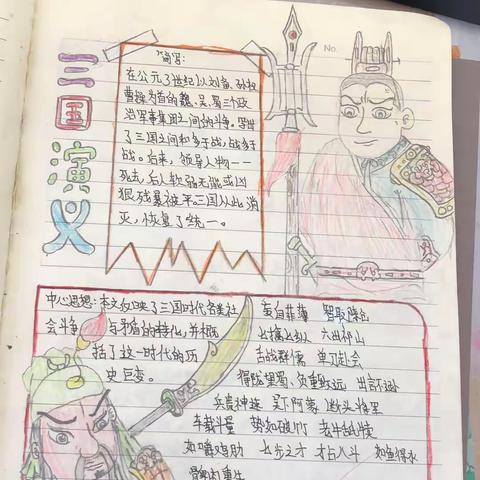 三国演义
简写:
在公元3世纪以刘备、孙权
曹操为首的魏、吴、蜀三个政
治军事集团之间的斗争。写出
了三国之间和多于战,战多于
战。后来,领导人物一一
死去,后人软弱无能或凶
狠残暴被平三国从此消
灭,恢复了统一。
No.
中心思想:本文反映了三国时代各类社
会斗争与矛盾的转化,并概
括了这一时代的历
史巨变。
妄自菲薄 智取陈仓
七擒七纵 六出祁山
舌战群儒 单刀赴会
得陇望蜀、负重致远 出言不逊
兵贵神速 吴下阿蒙 断头将军
车载斗量 势如破竹 老牛舐犊
如嚼鸡肋 七步之才 才占八斗 如鱼得水
髀肉重生